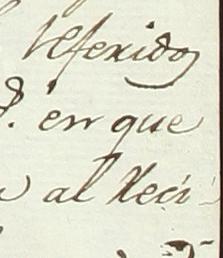 referido
en que
al Reci